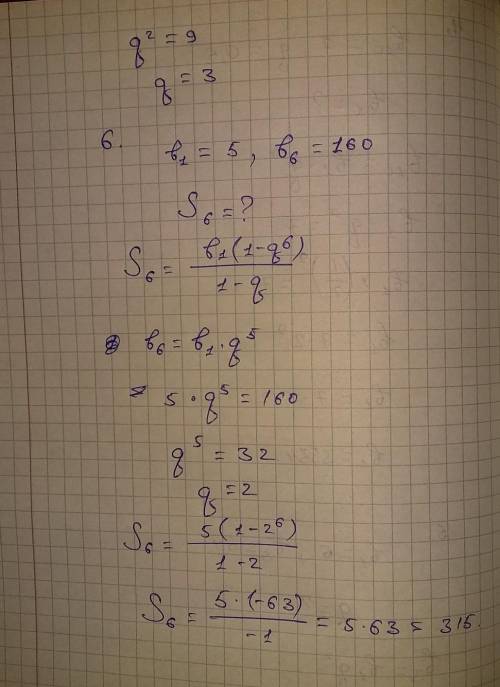 q² = 9
q = 3
6. b₁ = 5, b₆ = 160
S₆ = ?
S₆ = b₁(1-q⁶) / 1-q
b₆ = b₁·q⁵
5·q⁵ = 160
q⁵ = 32
q = 2
S₆ = 5(1-2⁶) / 1-2
S₆ = 5·(-63) / -1 = 5·63 = 315.